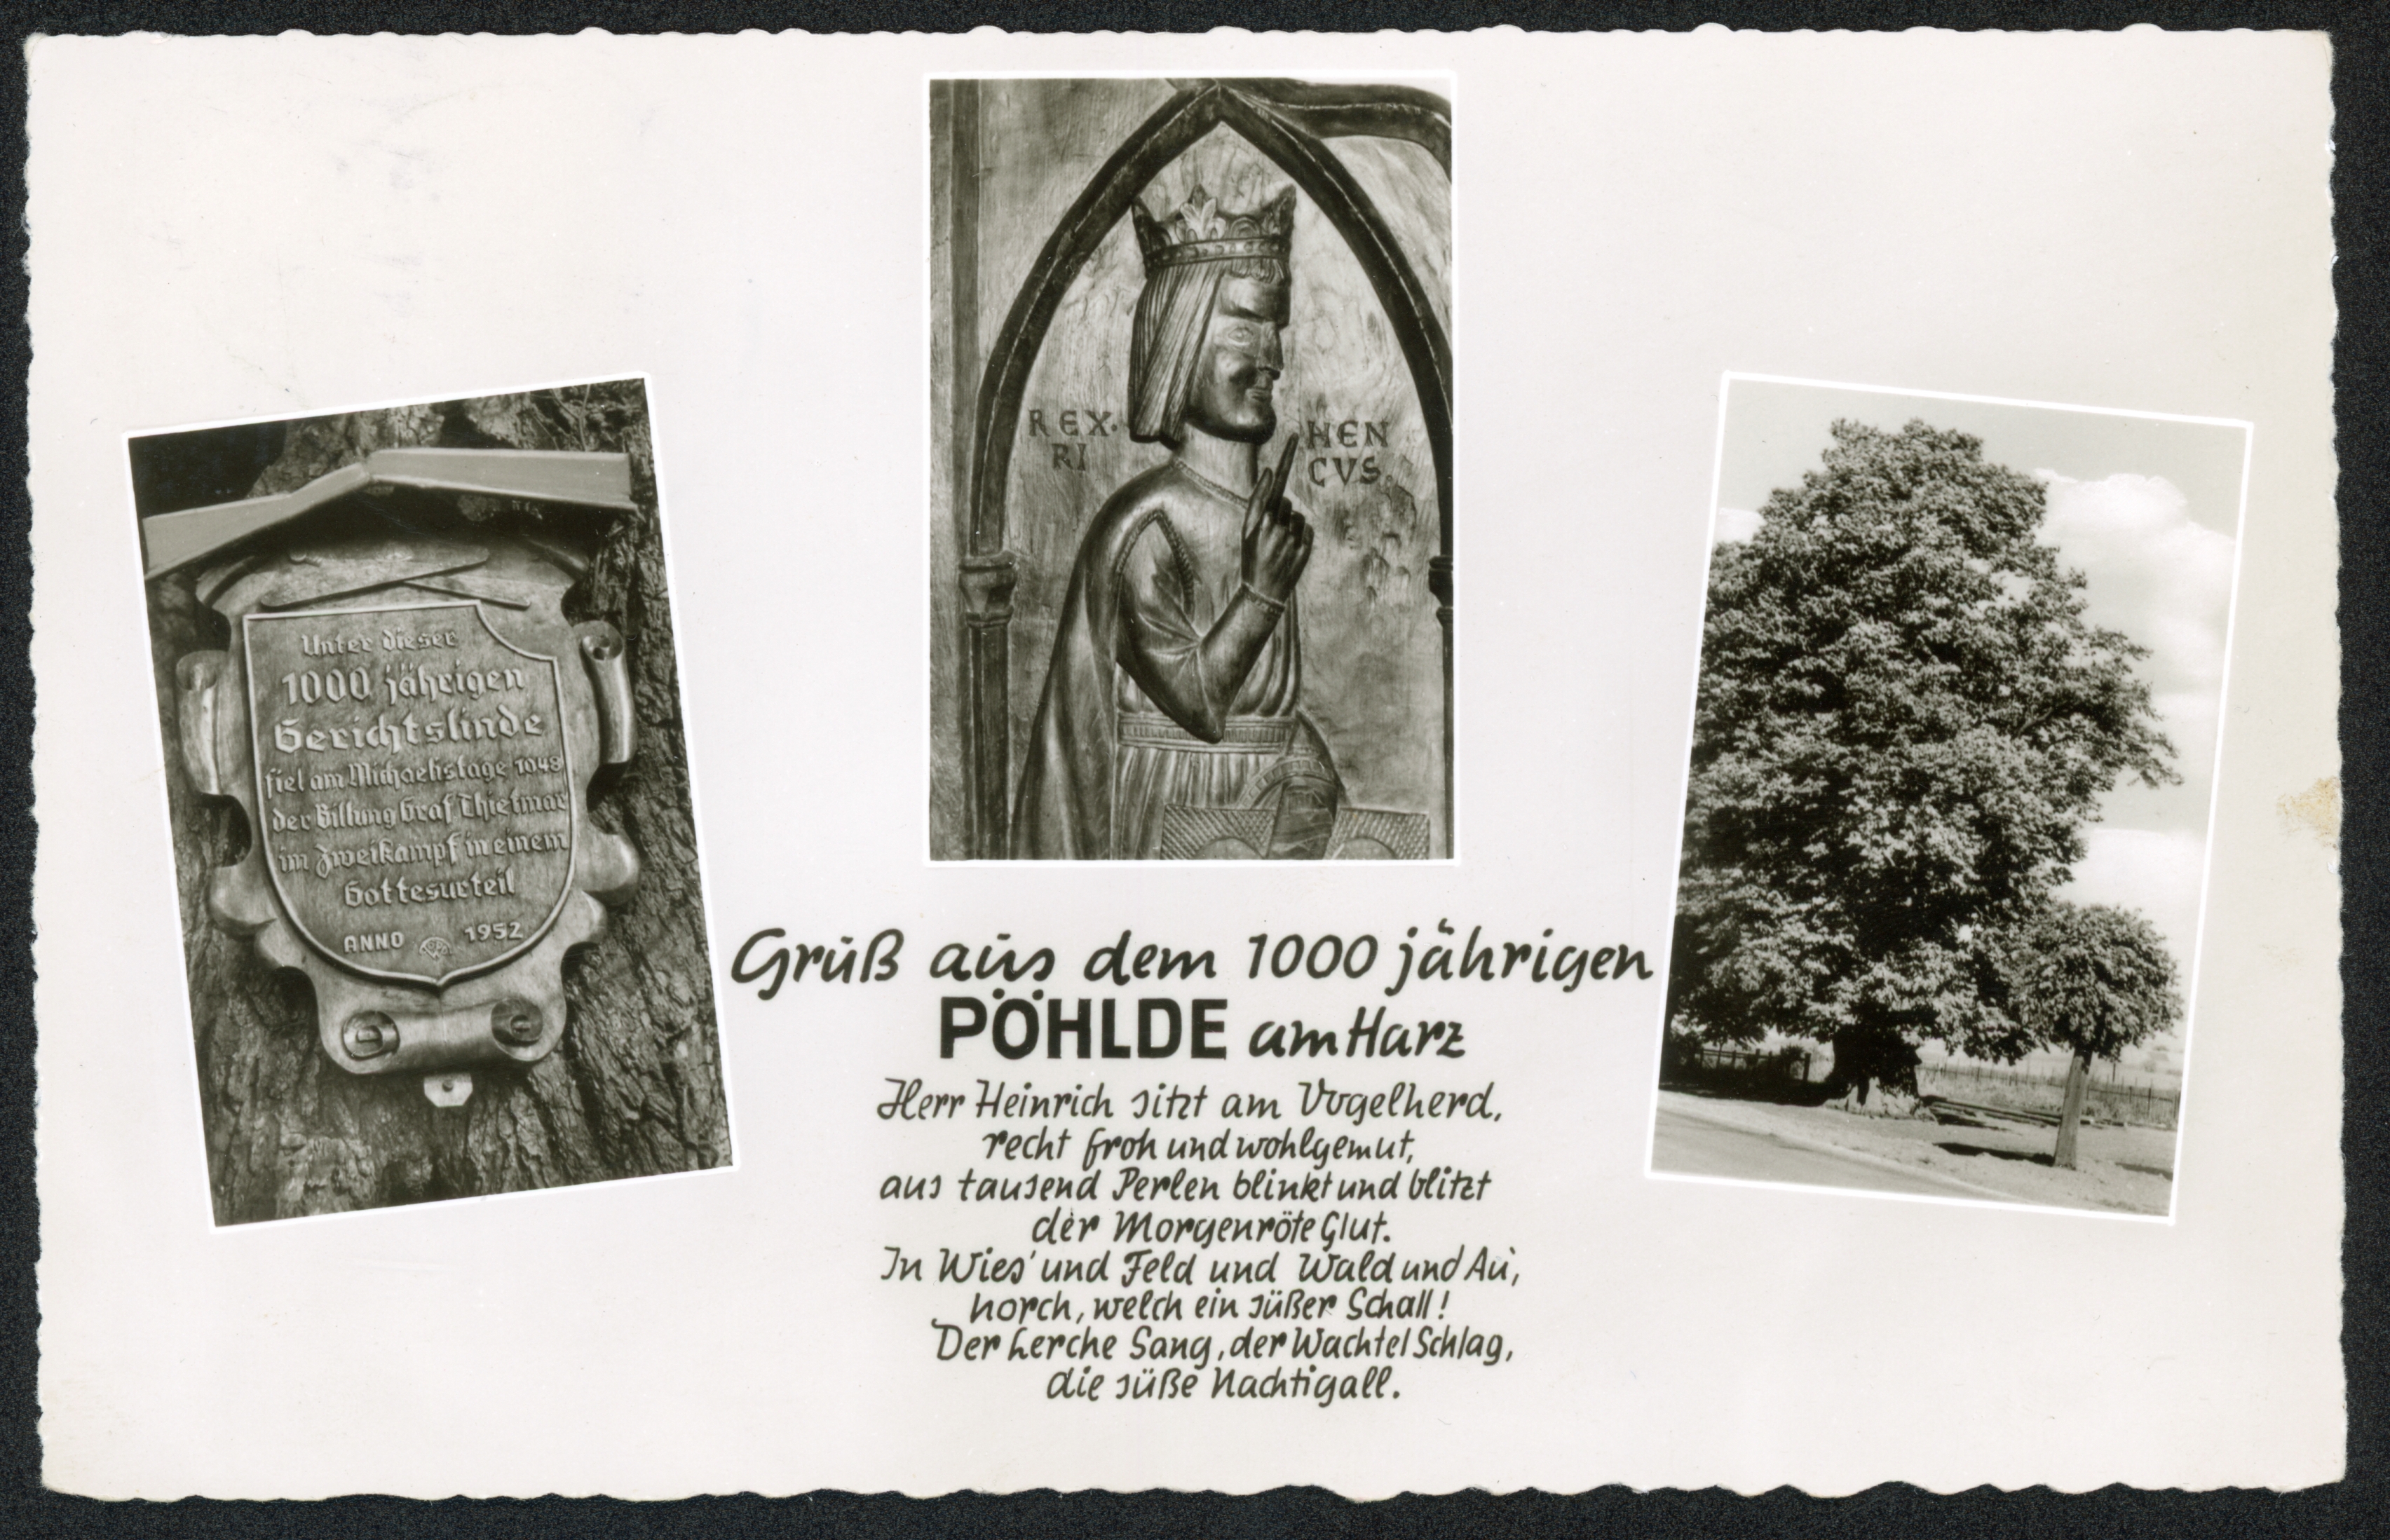 Unter dieser
1000 jährigen
Gerichtslinde
fiel am Michaelistage 1048
der Billung Graf Thietmar
im Zweikampf in einem
Gottesurteil
ANNO 1952
REX. HEN
RI CVS.
Gruß aus dem 1000 jährigen
PÖHLDE am Harz
Herr Heinrich sitzt am Vogelherd,
recht froh und wohlgemut,
aus tausend Perlen blinkt und blitzt
der Morgenröte Glut.
In Wies' und Feld und Wald und Au,
horch, welch ein süßer Schall!
Der Lerche Sang, der Wachtel Schlag,
die süße Nachtigall.